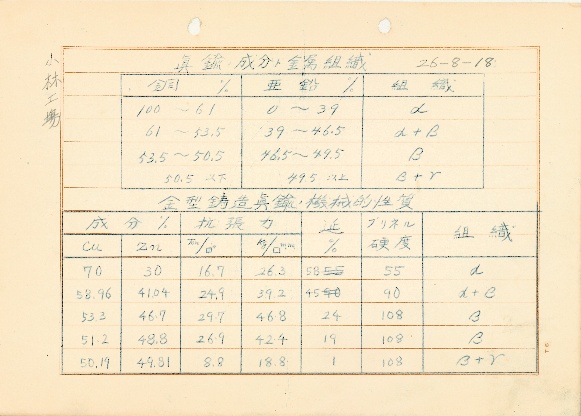 小林工場
眞鍮ノ成分ト金属組織 26-8-18
銅 % 亜鉛 % 組織
100～61 0～39 α
61～53.5 39～46.5 α+β
53.5～50.5 46.5～49.5 β
50.5 以下 49.5 以上 β+γ
金型鋳造眞鍮ノ機械的性質
成分% 抗張力 延 ブリネル 組織
Cu Zn Ton/□" Kg/□mm % 硬度
70 30 16.7 26.3 58 55 55 α
58.96 41.04 24.9 39.2 45 40 90 α+β
53.3 46.7 29.7 46.8 24 108 β
51.2 48.8 26.9 42.4 19 108 β
50.19 49.81 8.8 18.8 1 108 β+γ